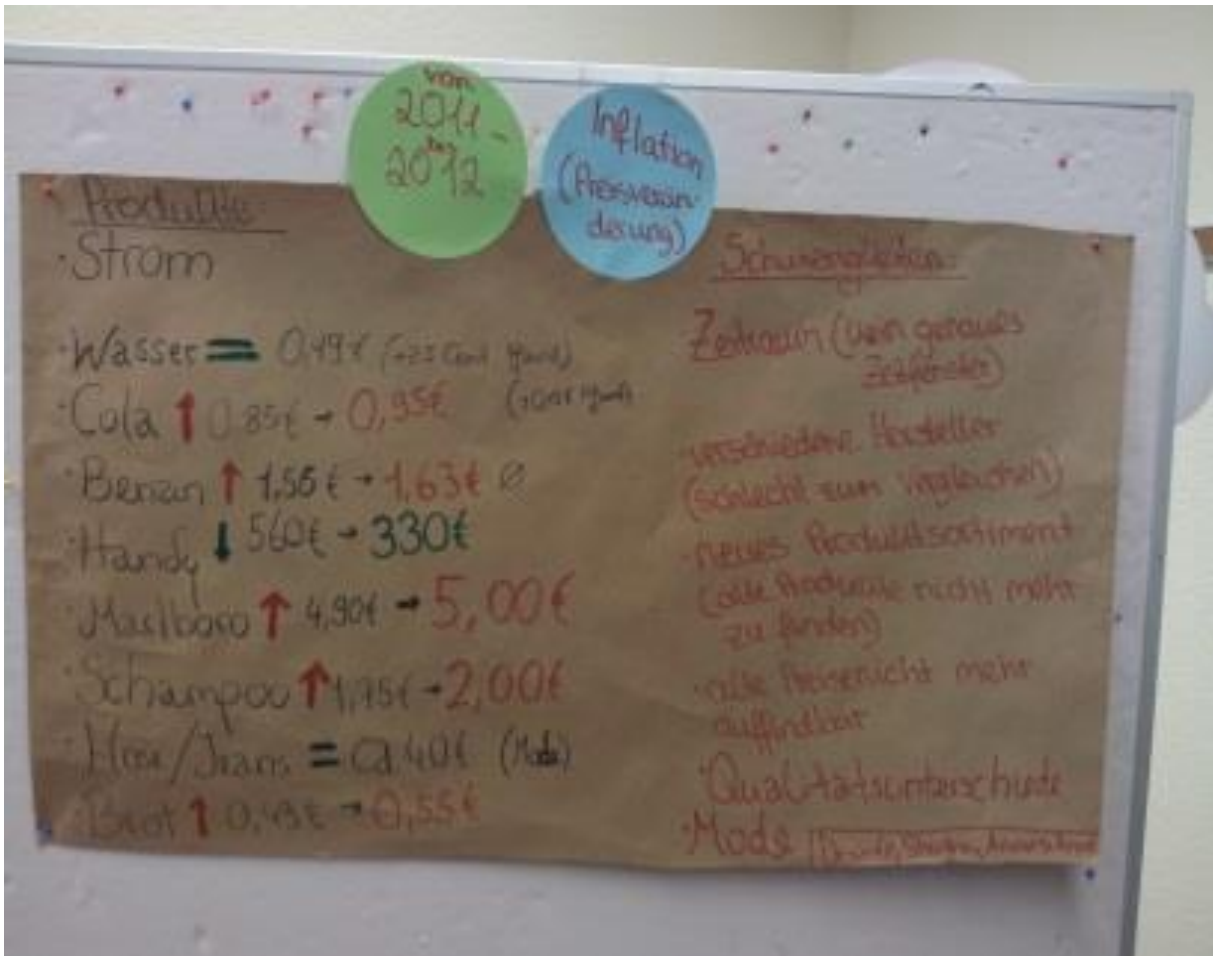 von
2011 -
bis
2012
Inflation
(Preisverän-
derung)
Produkte:
· Strom
· Wasser = 0,49€ (+25 Cent Pfand)
· Cola ↑ 0,85€ → 0,95€
· Benzin ↑ 1,56€ → 1,63€ ∅
· Handy ↓ 560€ → 330€
· Marlboro ↑ 4,90€ → 5,00€
· Schampoo ↑ 1,95€ → 2,00€
· Hose/Jeans = ca. 40€ (Mode)
· Brot ↑ 0,49€ → 0,55€
Schwierigkeiten:
· Zeitraum (kein genaues
Zeitfenster)
· verschiedene Hersteller
(schlecht zum vergleichen)
· neues Produktsortiment
(alte Produkte nicht mehr
zu finden)
· alte Preise nicht mehr
auffindbar
· Qualitätsunterschiede
· Mode